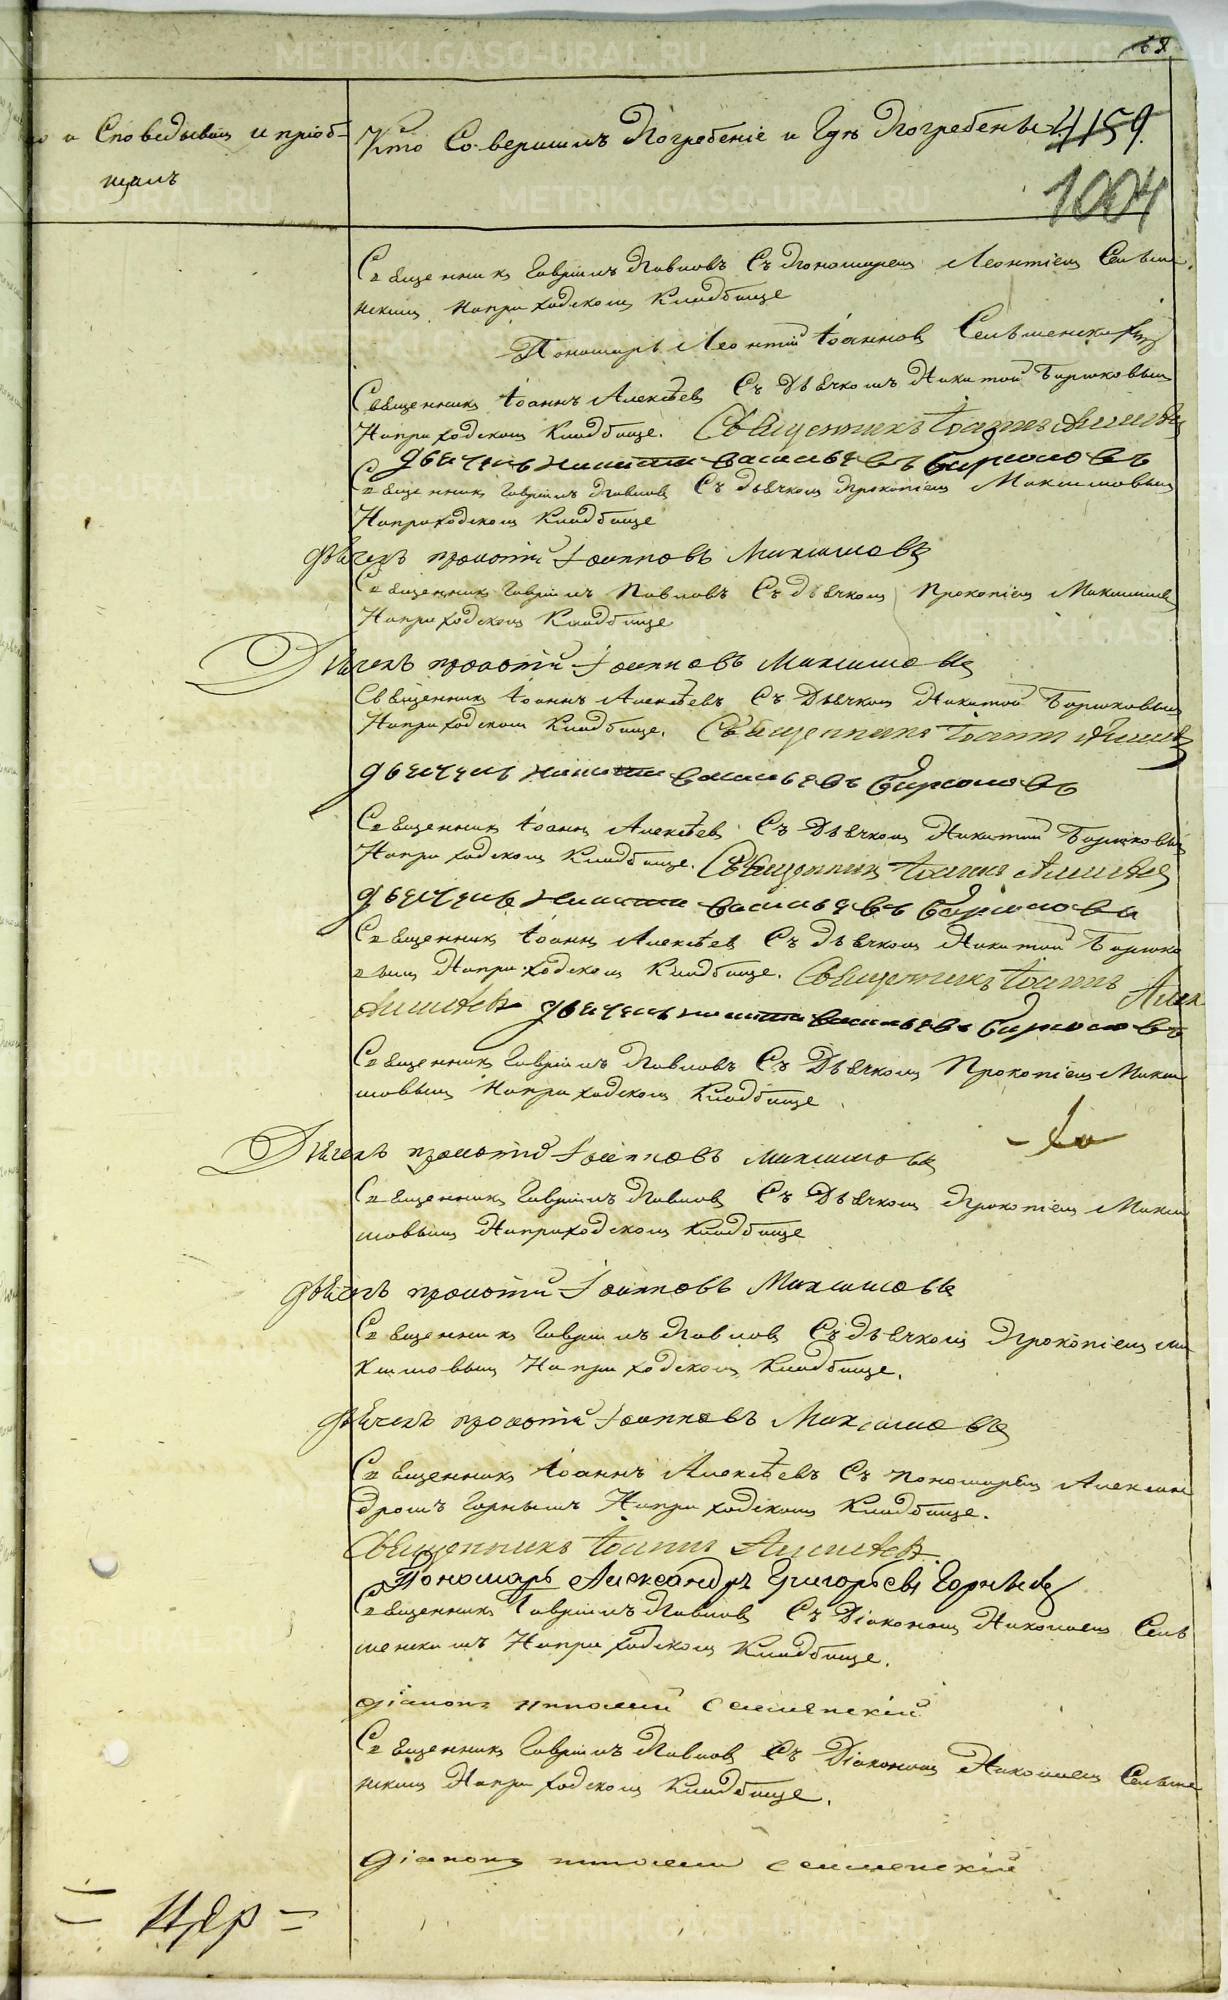 69
о и Споведывалъ и пріоб-
щалъ
Кто Совершилъ Погребеніе и Гдѣ Погребены
4159
1004
Священникъ Гавріилъ Павловъ Съ Пономаремъ Леонтіемъ Сельме-
нскимъ Наприходскомъ Кладбище
Пономарь Леонтій Іоанновъ Сельменскій
Священникъ Іоаннъ Алексѣевъ Съ Дьячкомъ Никитой Бирюковымъ
Наприходскомъ Кладбище. Священникъ Іоаннъ Алексѣевъ
дьячекъ никита васильевъ бирюковъ
Священникъ Гавріилъ Павловъ Съ Дьячкомъ Прокопіемъ Максимовымъ
Наприходскомъ Кладбище
дьячекъ прокопій Іоанновъ Максимовъ
Священникъ Гавріилъ Павловъ Съ дьячкомъ Прокопіемъ Максимовымъ
Наприходскомъ Кладбище
Дьячекъ прокопій Іоанновъ Максимовъ
Священникъ Іоаннъ Алексѣевъ Съ Дьячкомъ Никитой Бирюковымъ
Наприходскомъ Кладбище. Священникъ Іоаннъ Алексѣевъ
дьячекъ никита васильевъ бирюковъ
Священникъ Іоаннъ Алексѣевъ Съ Дьячкомъ Никитой Бирюковымъ
Наприходскомъ Кладбище. Священникъ Іоаннъ Алексѣевъ
дьячекъ никита васильевъ бирюковъ
Священникъ Іоаннъ Алексѣевъ Съ дьячкомъ Никитой Бирюко
вымъ Наприходскомъ Кладбище. Священникъ Іоаннъ Алек
Алексѣевъ дьячекъ никита васильевъ бирюковъ
Священникъ Гавріилъ Павловъ Съ Дьячкомъ Прокопіемъ Макси
мовымъ Наприходскомъ Кладбище
Дьячекъ прокопій Іоанновъ максимовъ
Священникъ Гавріилъ Павловъ Съ Дьячкомъ Прокопіемъ Макси
мовымъ Наприходскомъ Кладбище
дьячекъ прокопій Іоанновъ Максимовъ
Священникъ Гавріилъ Павловъ Съ дьячкомъ Прокопіемъ Ма
ксимовымъ Наприходскомъ Кладбище.
дьячекъ прокопій Іоанновъ Максимовъ
Священникъ Іоаннъ Алексѣевъ Съ пономаремъ Алексан
дромъ Горнымъ Наприходскомъ Кладбище.
Священникъ Іоаннъ Алексѣевъ
Пономарь Александръ Григорьевъ Горныхъ
Священникъ Гавріилъ Павловъ Съ Діакономъ Николаемъ Сель
менскимъ Наприходскомъ Кладбище.
діаконъ николай Селменскій
Священникъ Гавріилъ Павловъ Съ Діакономъ Николаемъ Сельме
нскимъ Наприходскомъ Кладбище.
діаконъ николай Селменскій
= Щер =
METRIKI.GASO-URAL.RU